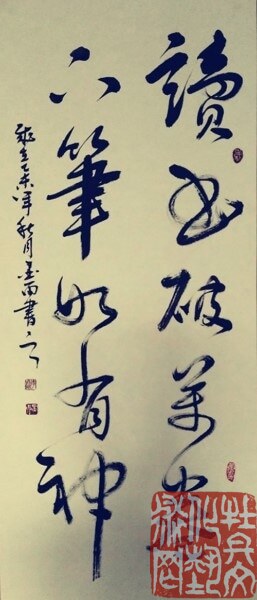 讀書破萬卷
下筆如有神
歲在乙未年秋月書之